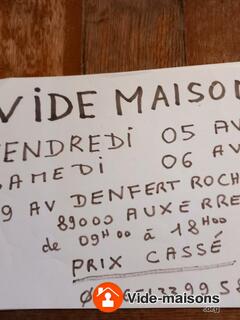 VIDE MAISON
VENDREDI 05 AV
SAMEDI 06 AV
9 AV DENFERT ROCH
89000 AUXERRE
de 09H00 à 18H00
PRIX CASSÉ
Vide-maisons
.org